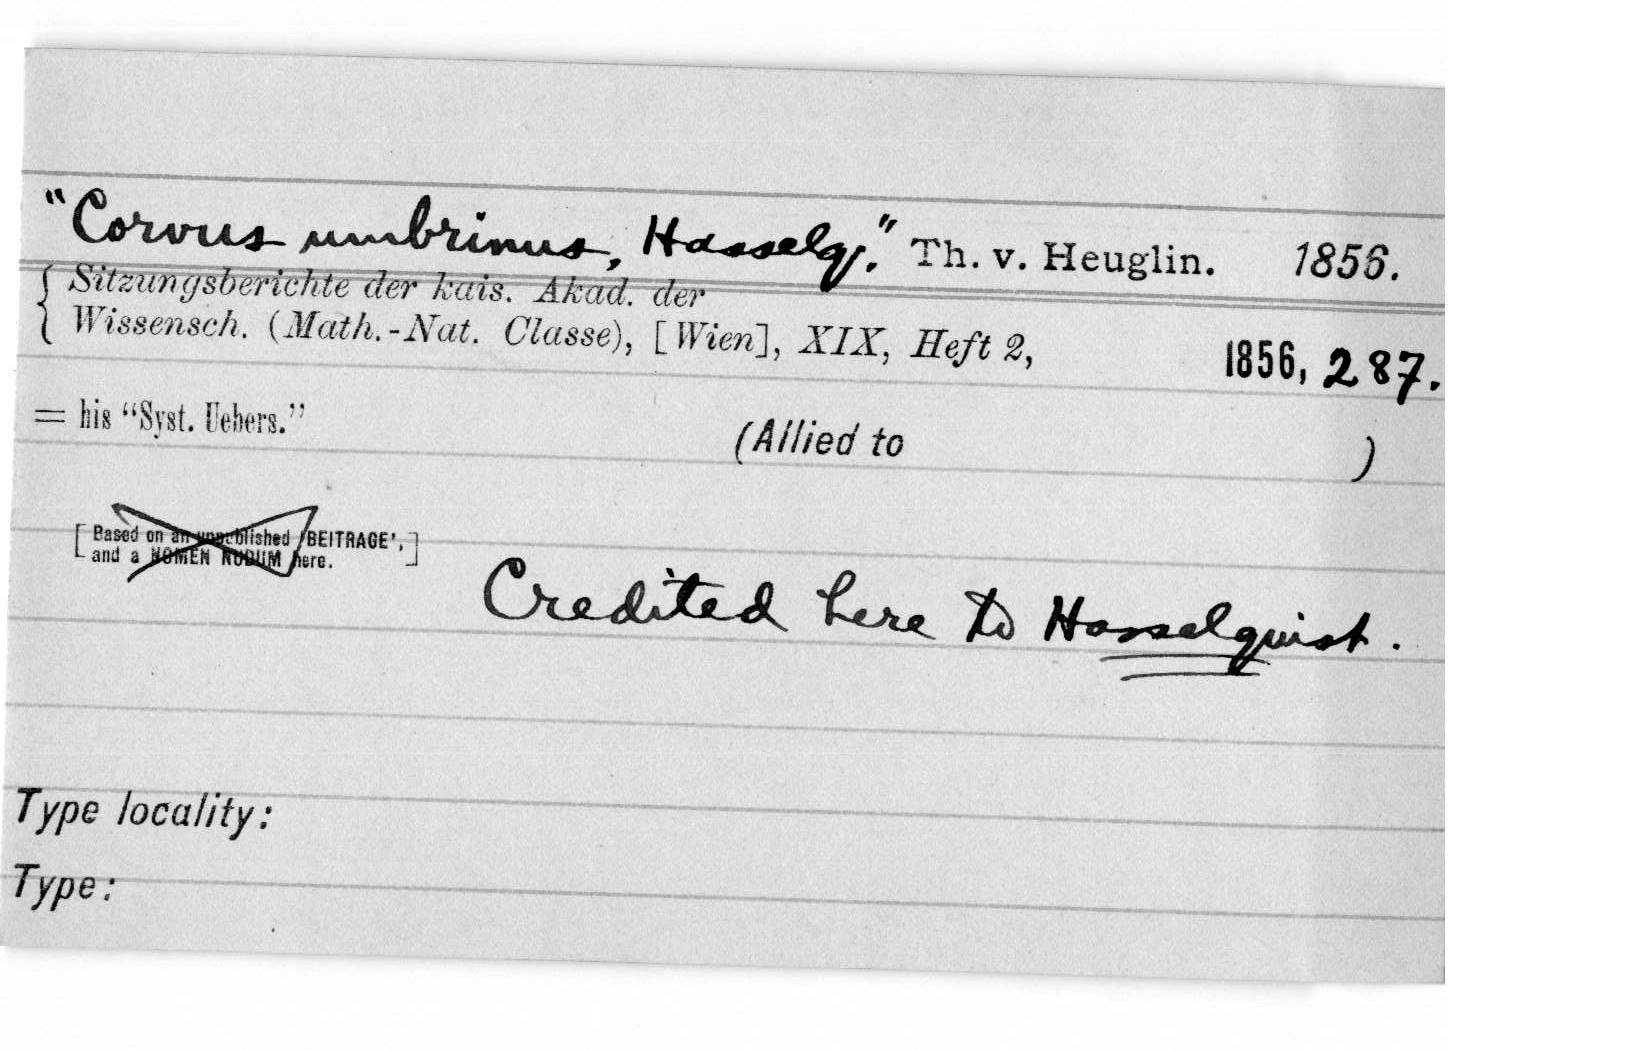 "Corvus umbrinus, Hasselq." Th. v. Heuglin. 1856.
Sitzungsberichte der kais. Akad. der
Wissensch. (Math.-Nat. Classe), [Wien], XIX, Heft 2, 1856, 287.
= his "Syst. Uebers." (Allied to )
[Based on an unpublished 'BEITRAGE',
and a NOMEN NUDUM here.]
Credited here to Hasselquist.
Type locality:
Type: